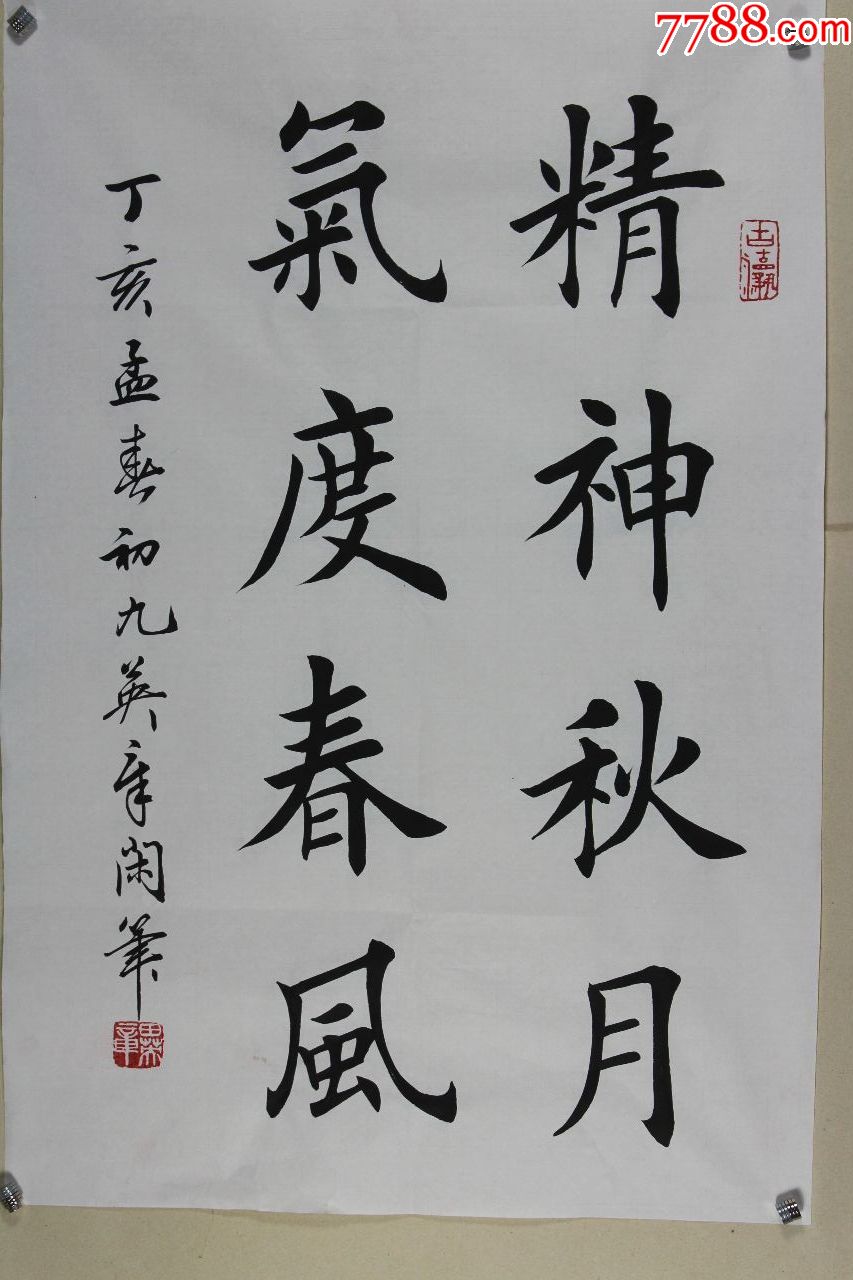 7788.com
精神秋月
氣度春風
丁亥孟春初九英章閑筆